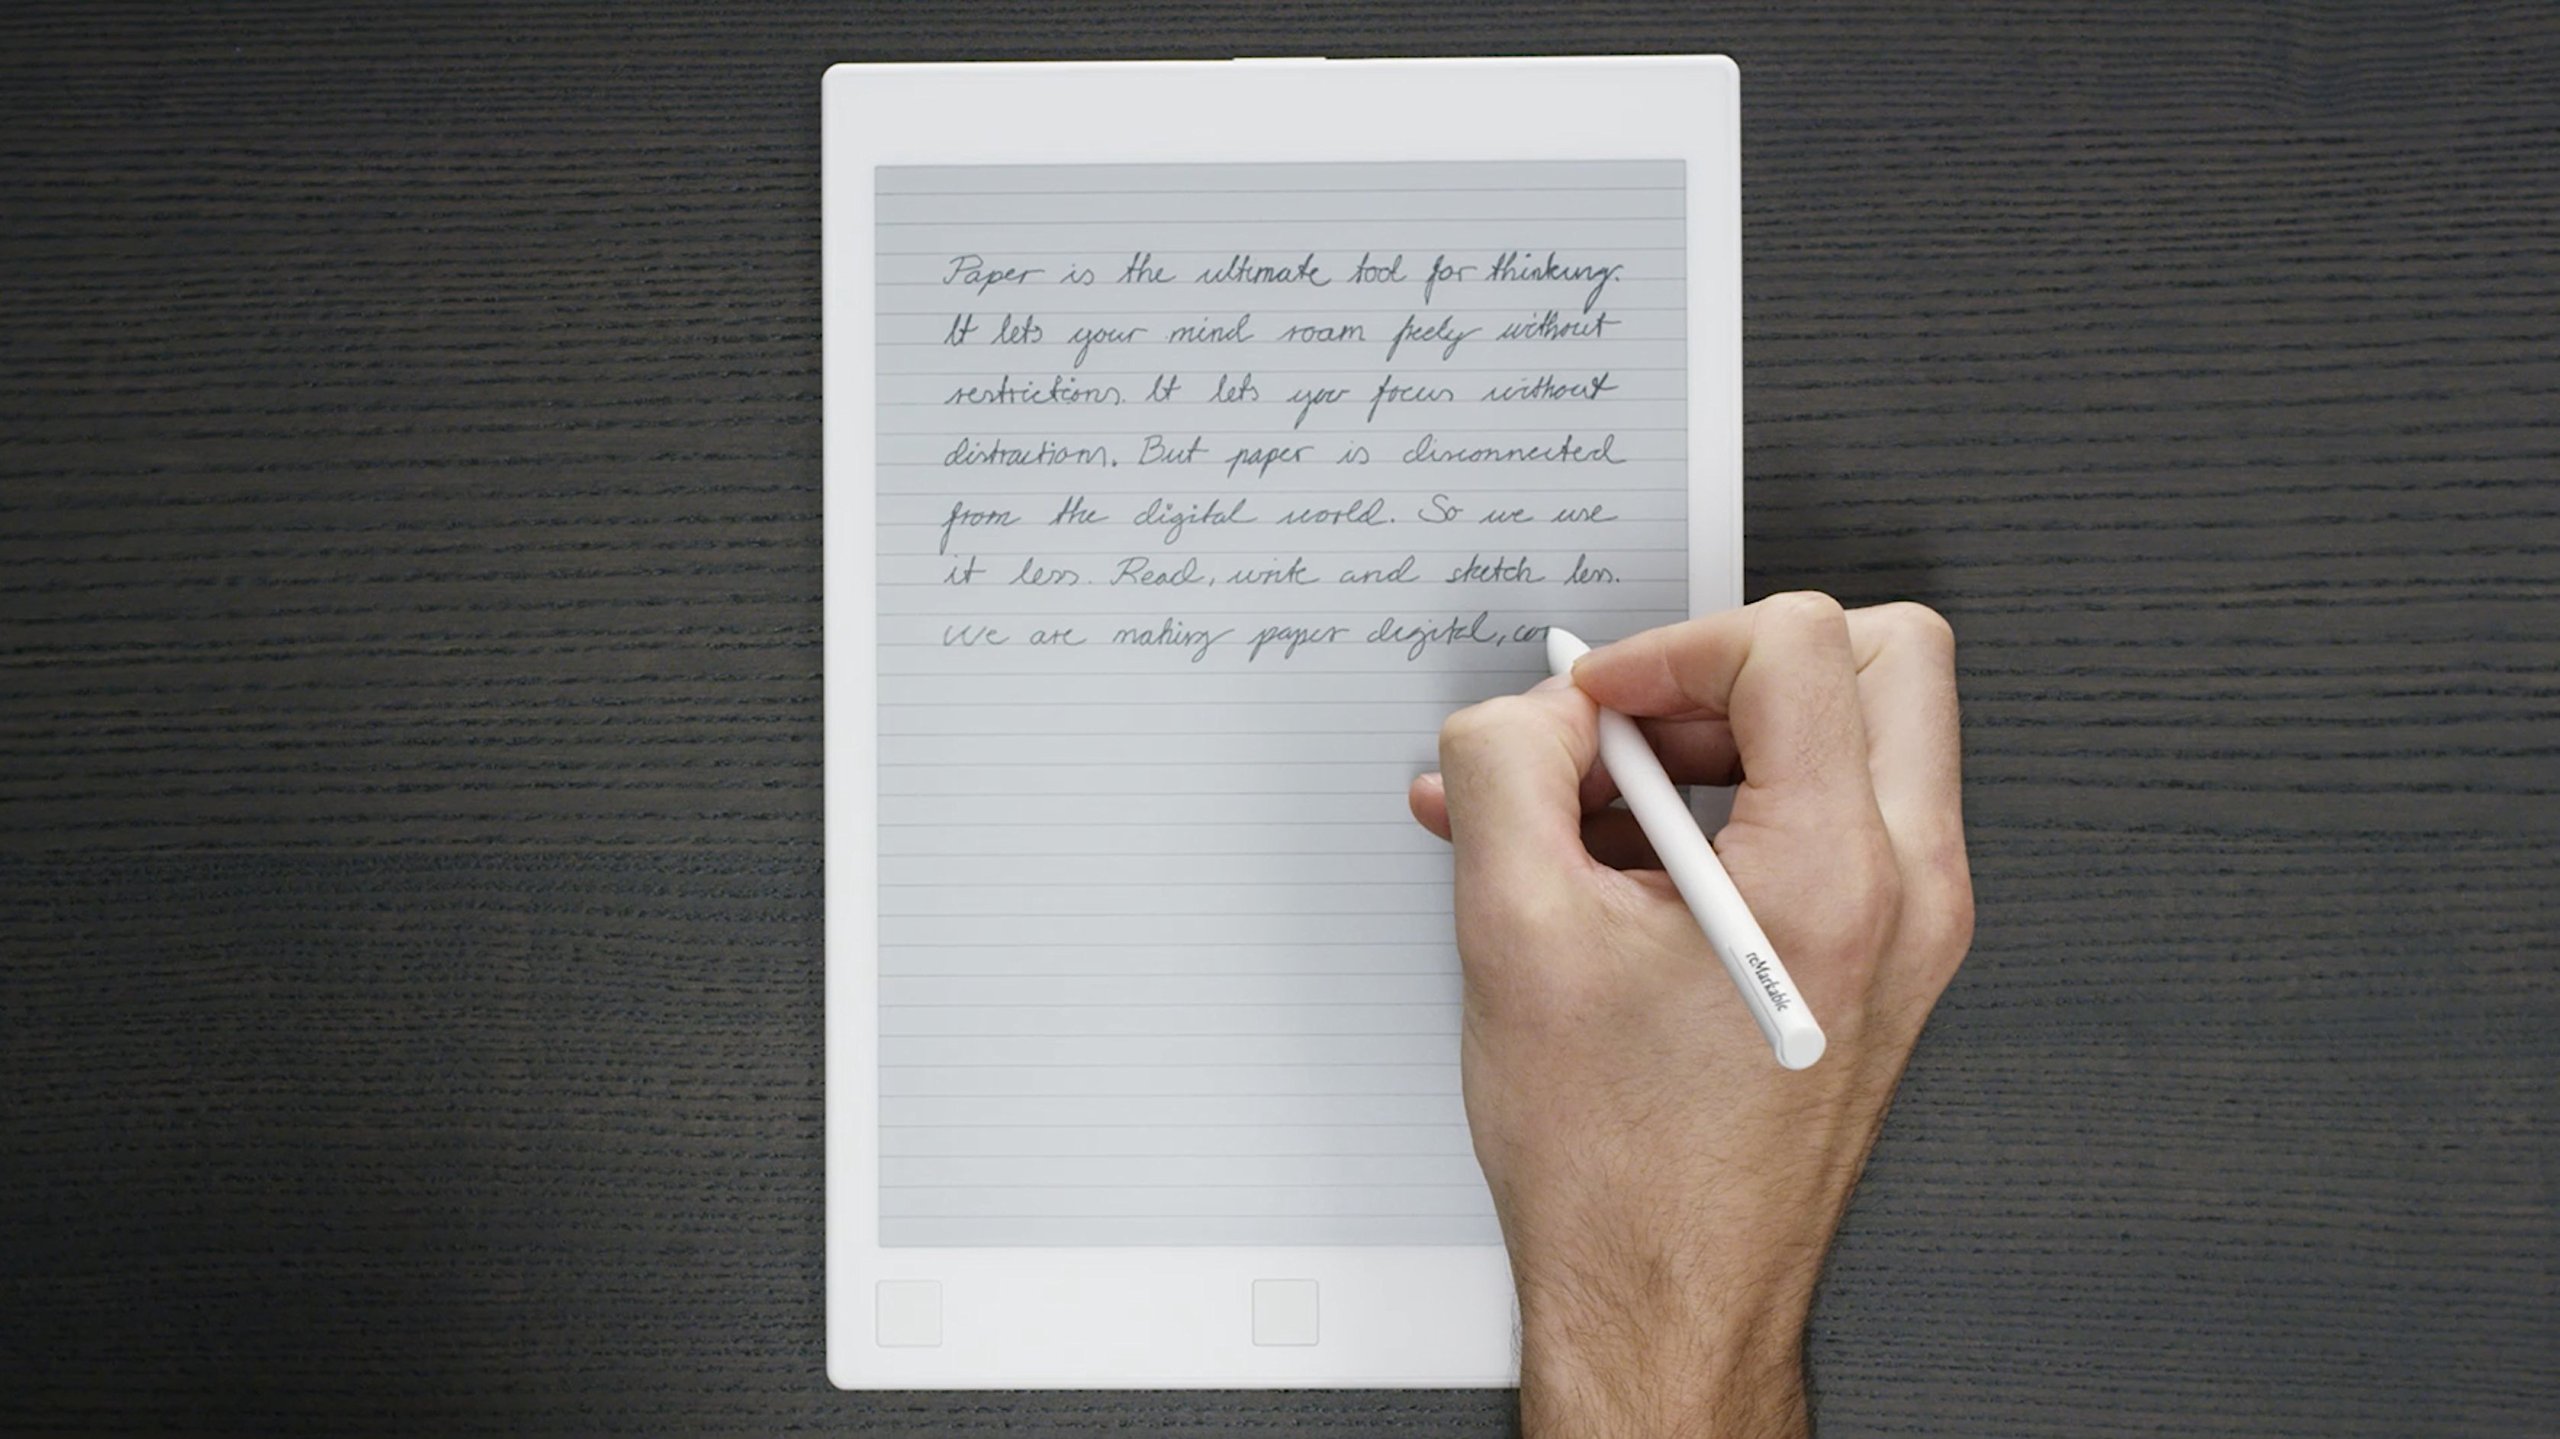 Paper is the ultimate tool for thinking.
It lets your mind roam freely without
restrictions. It lets you focus without
distractions. But paper is disconnected
from the digital world. So we use
it less. Read, write and sketch less.
We are making paper digital, con
reMarkable